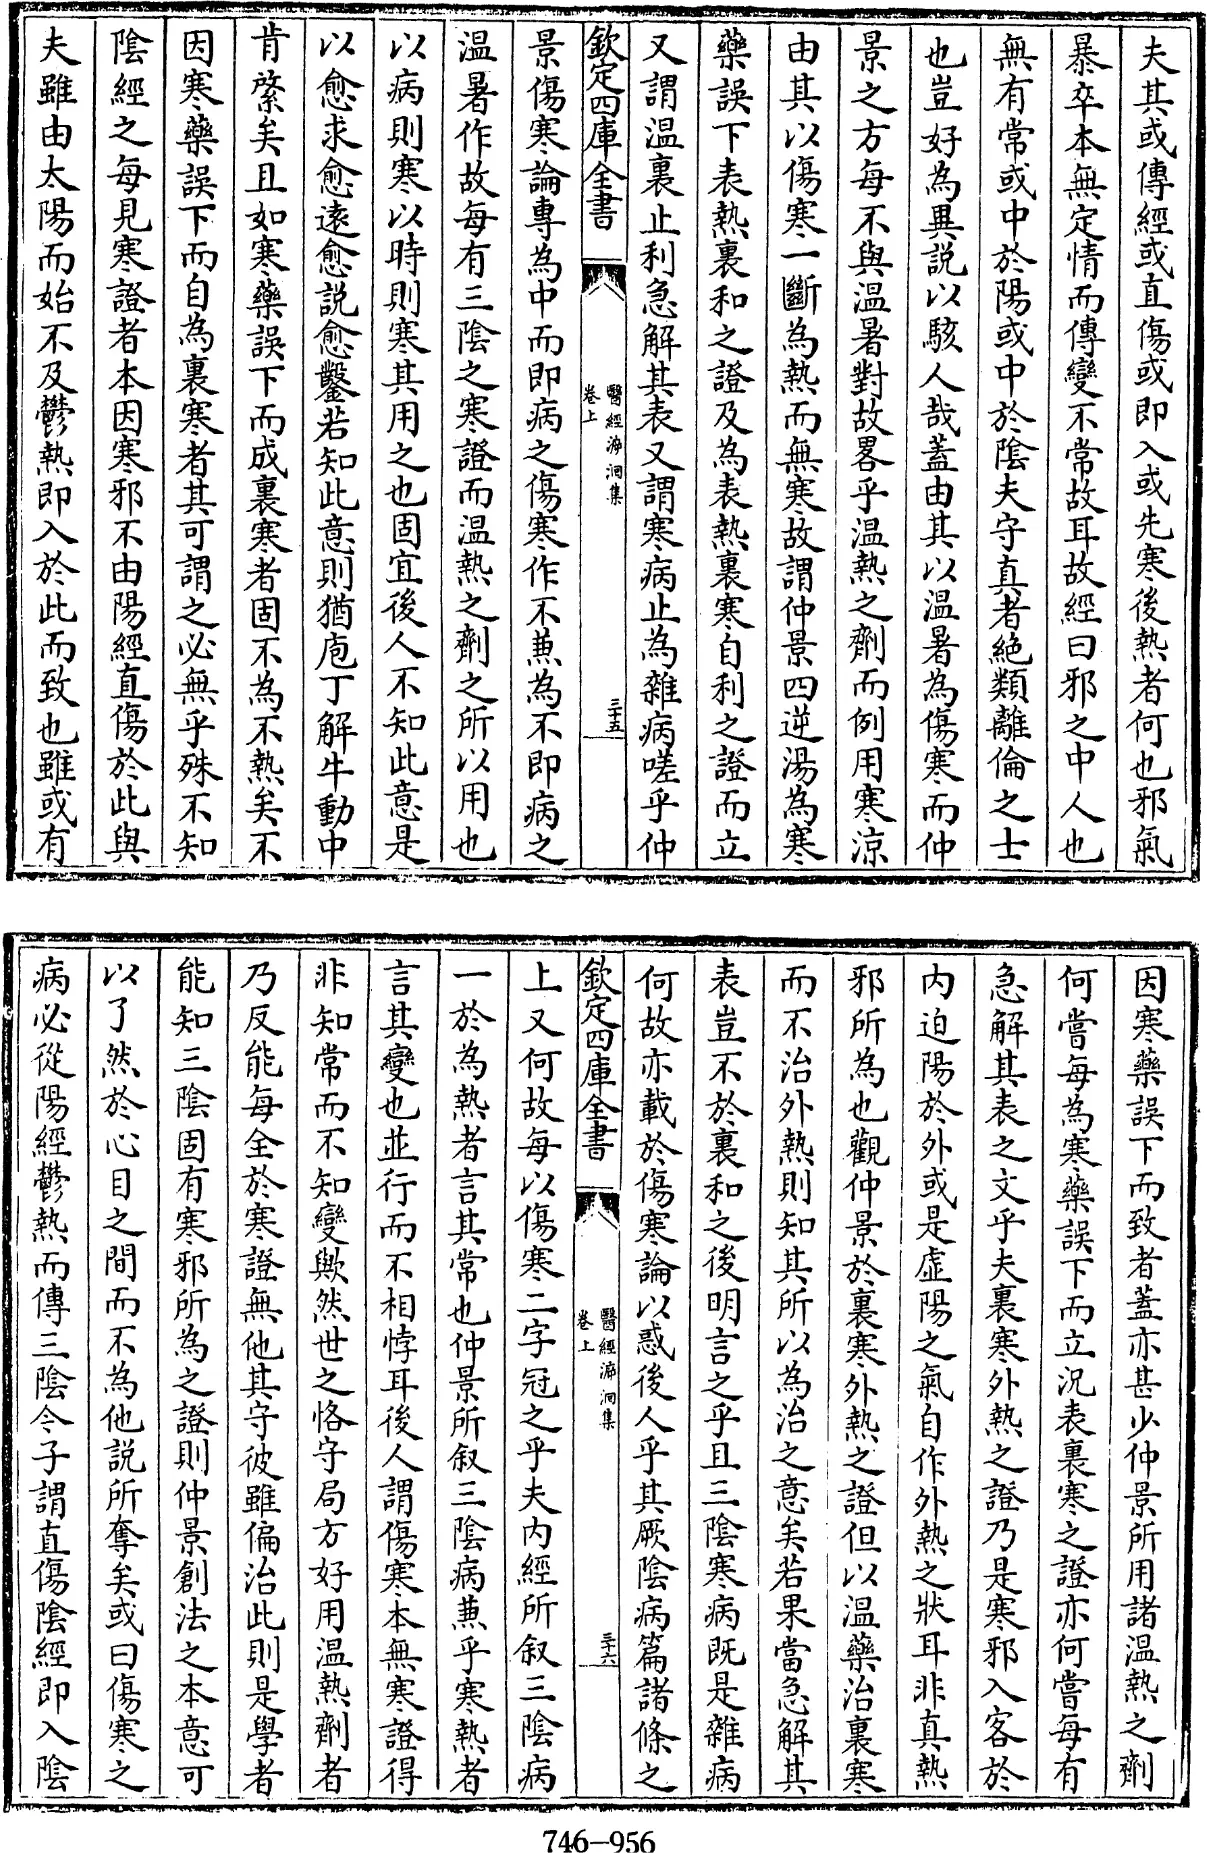 夫其或傳經或直傷或即入或先寒後熱者何也邪氣
暴卒本無定情而傳變不常故耳故經曰邪之中人也
無有常或中於陽或中於陰夫守真者絶類離倫之士
也豈好為異説以駭人哉蓋由其以温暑為傷寒而仲
景之方每不與温暑對故畧乎温熱之劑而例用寒涼
由其以傷寒一斷為熱而無寒故謂仲景四逆湯為寒
藥誤下表熱裏和之證及為表熱裏寒自利之證而立
又謂温裏止利急解其表又謂寒病止為雜病嗟乎仲
欽定四庫全書
醫經溯洄集
卷上
三十五
景傷寒論專為中而即病之傷寒作不兼為不即病之
温暑作故每有三陰之寒證而温熱之劑之所以用也
以病則寒以時則寒其用之也固宜後人不知此意是
以愈求愈逺愈説愈鑿若知此意則猶庖丁解牛動中
肯綮矣且如寒藥誤下而成裏寒者固不為不熱矣不
因寒藥誤下而自為裏寒者其可謂之必無乎殊不知
陰經之每見寒證者本因寒邪不由陽經直傷於此與
夫雖由太陽而始不及鬱熱即入於此而致也雖或有
因寒藥誤下而致者蓋亦甚少仲景所用諸温熱之劑
何嘗每為寒藥誤下而立況表裏寒之證亦何嘗每有
急解其表之文乎夫裏寒外熱之證乃是寒邪入客於
内迫陽於外或是虛陽之氣自作外熱之狀耳非真熱
邪所為也觀仲景於裏寒外熱之證但以温藥治裏寒
而不治外熱則知其所以為治之意矣若果當急解其
表豈不於裏和之後明言之乎且三陰寒病既是雜病
何故亦載於傷寒論以惑後人乎其厥陰病篇諸條之
欽定四庫全書
醫經溯洄集
卷上
三十六
上又何故每以傷寒二字冠之乎夫内經所叙三陰病
一於為熱者言其常也仲景所叙三陰病兼乎寒熱者
言其變也並行而不相悖耳後人謂傷寒本無寒證得
非知常而不知變歟然世之恪守局方好用温熱劑者
乃反能每全於寒證無他其守彼雖偏治此則是學者
能知三陰固有寒邪所為之證則仲景創法之本意可
以了然於心目之間而不為他説所奪矣或曰傷寒之
病必從陽經鬱熱而傳三陰今子謂直傷陰經即入陰
746-956